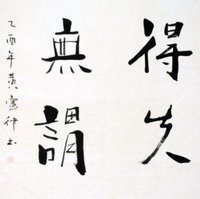 得失
無謂
乙酉年黃憲律書